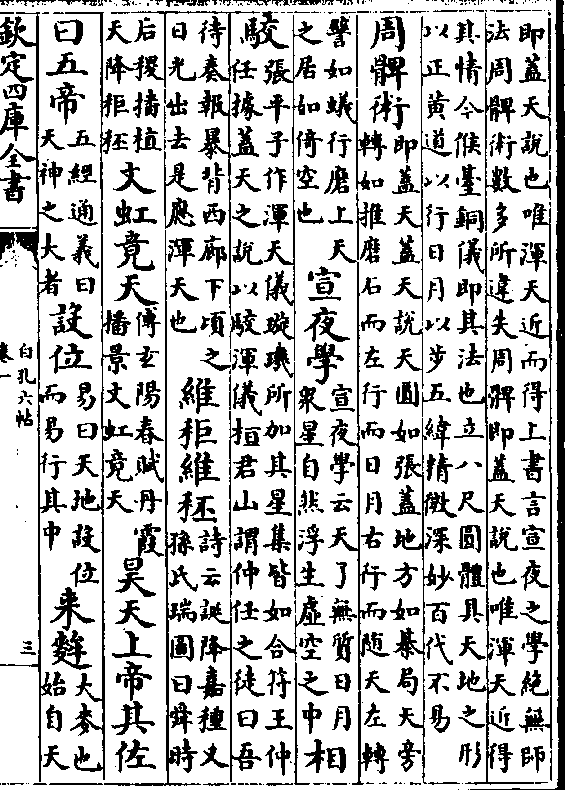 即蓋天說也唯渾天近而得上書言宣夜之學絕無師
法周髀術數多所違失周髀即蓋天說也唯渾天近得
其情今候臺銅儀即其法也立八尺圓體具天地之形
以正黃道以行日月以步五緯精微深妙百代不易
周髀術
即蓋天蓋天說天圓如張蓋地方如棊局天旁
轉如推磨石而左行而日月右行而隨天左轉
譬如蟻行磨上天
之居如倚空也
宣夜學
宣夜學云天了無質日月
衆星自然浮生虛空之中
相
駮
張平子作渾天儀璇璣所加其星集皆如合符王仲
任據蓋天之說以駮渾儀桓君山謂仲任之徒曰吾
待奏報暴背西廊下頃之
日光出去是應渾天也
維秬維秠
詩云誕降嘉種又
孫氏瑞圖曰舜時
后稷播植
天降秬秠
文虹竟天
傅玄陽春賦丹霞
播景文虹竟天
昊天上帝其佐
曰五帝
五經通義曰
天神之大者
設位
易曰天地設位
而易行其中
來麰
大麥也
始自天
欽定四庫全書
白孔六帖
卷一
三